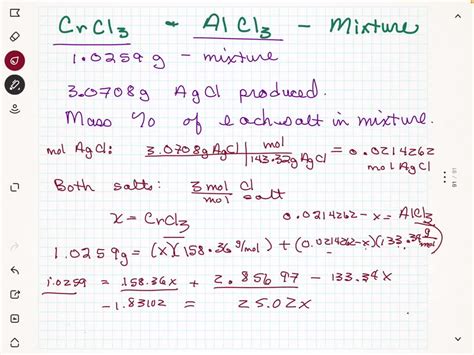 CrCl3 - AlCl3 - Mixture
1.0259 g - mixture
3.0708g AgCl produced.
Mass % of each salt in mixture.
mol AgCl: 3.0708g AgCl | mol / 143.32g AgCl = 0.0214262 mol AgCl
Both salts: 3 mol Cl / mol salt
x = CrCl3    0.0214262 - x = AlCl3
1.0259g = (x)(158.36 g/mol) + (0.0214262-x)(133.34 g/mol)
1.0259 = 158.36x + 2.85697 - 133.34x
-1.83102 = 25.02x